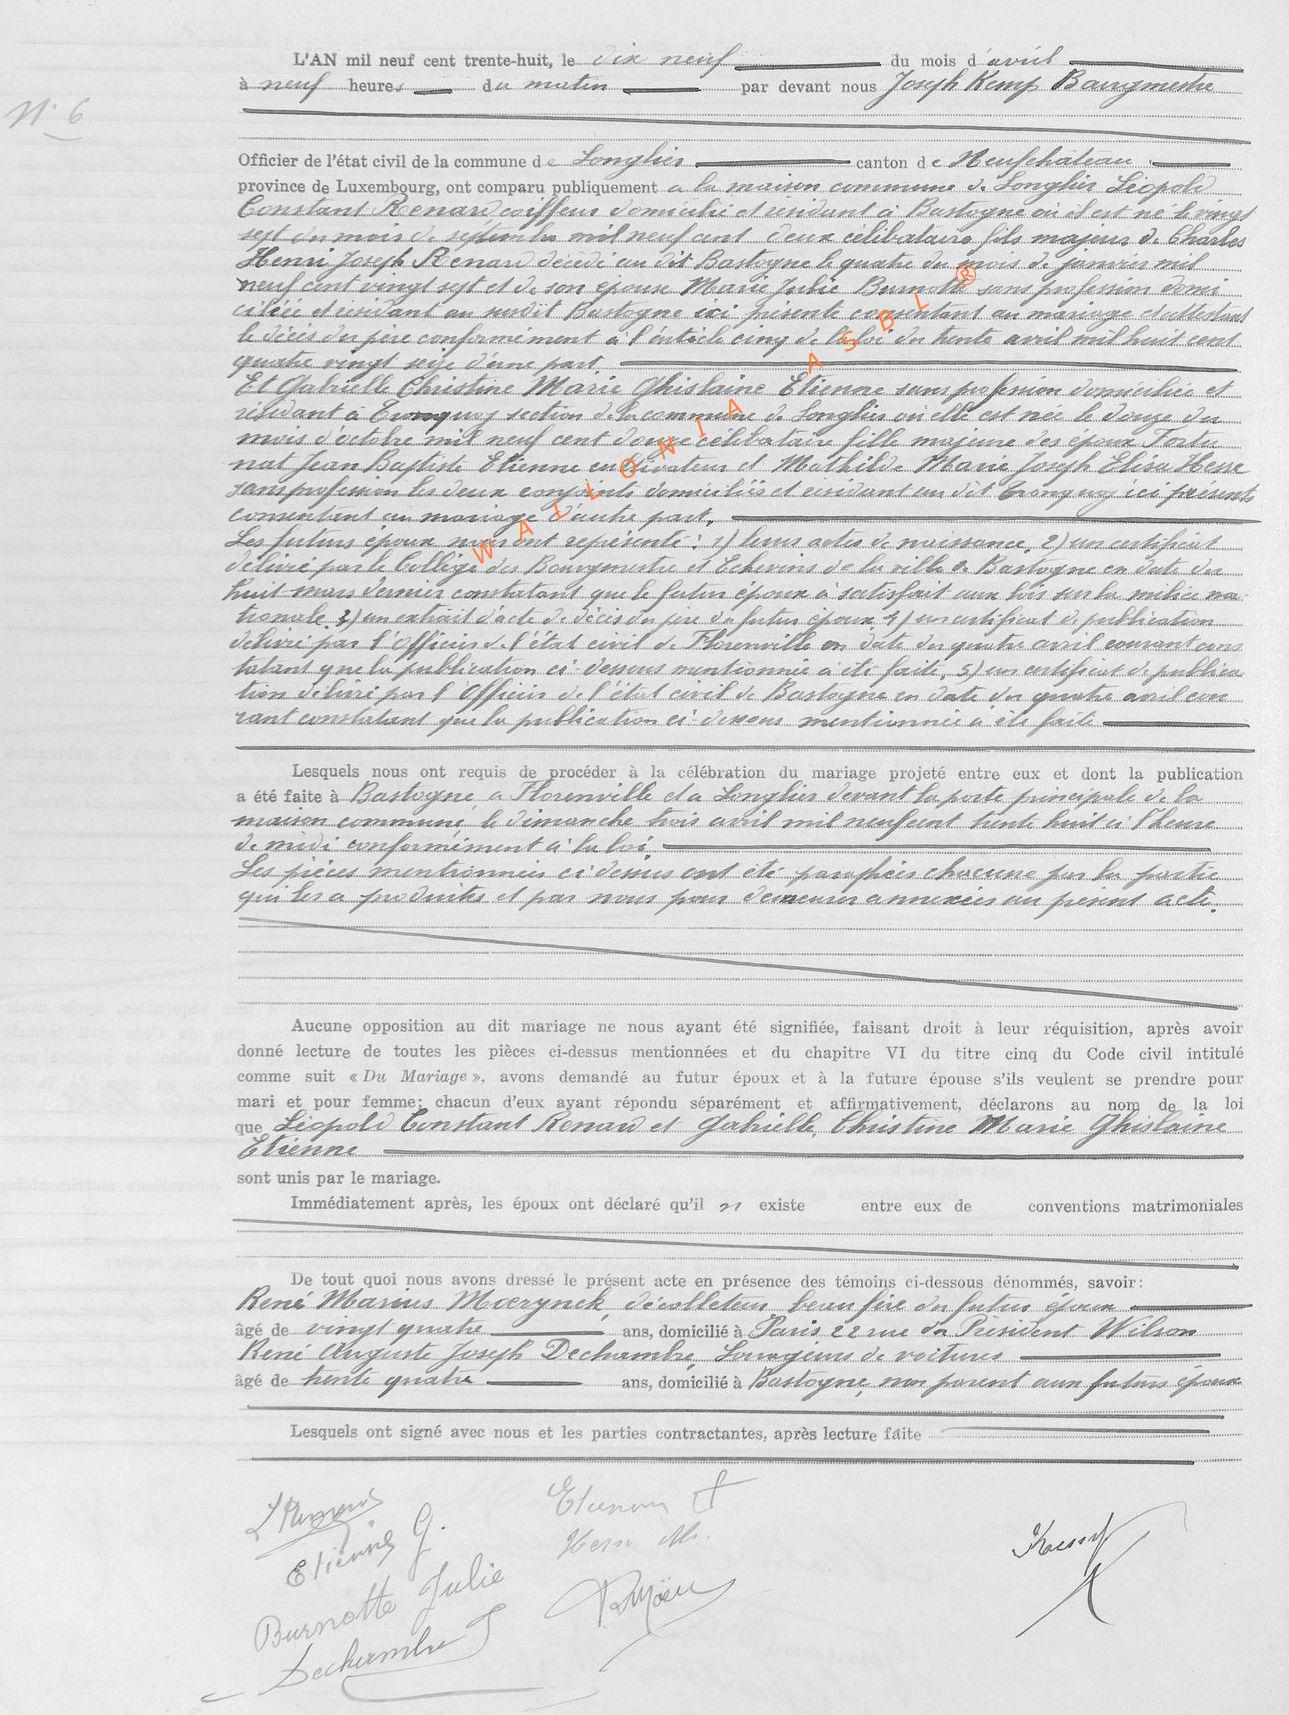 N° 6
L'AN mil neuf cent trente-huit, le dix neuf du mois d'avril
à neuf heures du matin par devant nous Joseph Kemp Bourgmestre
Officier de l'état civil de la commune de Longlier canton de Neufchâteau
province de Luxembourg, ont comparu publiquement a la maison commune de Longlier Léopold
Constant Renard coiffeur domicilié et résidant à Bastogne où il est né le vingt
sept du mois de septembre mil neuf cent deux célibataire, fils majeur de Charles
Henri Joseph Renard décédé au dit Bastogne le quatre du mois de janvier mil
neuf cent vingt sept et de son épouse Marie Julie Burnotte sans profession domi
ciliée et résidant au susdit Bastogne ici présente consentant au mariage et attestant
le décès du père conformément à l'article cinq de la loi du trente avril mil huit cent
quatre vingt seize d'une part
Et Gabrielle Christine Marie Ghislaine Etienne sans profession domiciliée et
résidant à Tronquoy section de la commune de Longlier où elle est née le douze du
mois d'octobre mil neuf cent douze célibataire fille majeure des époux Fortu
nat Jean Baptiste Etienne cultivateur et Mathilde Marie Joseph Elisa Hesse
sans profession les deux conjoints domiciliés et résidant au dit Tronquoy ici présents
consentant au mariage d'autre part.
Les futurs époux nous ont représenté : 1) leurs actes de naissance, 2) un certificat
délivré par le Collège des Bourgmestre et Echevins de la ville de Bastogne en date du
huit mars dernier constatant que le futur époux à satisfait aux lois sur la milice na-
tionale 3) un extrait d'acte de décès du père du futur époux, 4) un certificat de publication
délivré par l'Officier de l'état civil de Florenville en date du quatre avril courant cons
tatant que la publication ci-dessous mentionnée à été faite, 5) un certificat de publica
tion délivré par l'Officier de l'état civil de Bastogne en date du quatre avril cou
rant constatant que la publication ci-dessous mentionnée à été faite
Lesquels nous ont requis de procéder à la célébration du mariage projeté entre eux et dont la publication
a été faite à Bastogne a Florenville et a Longlier devant la porte principale de la
maison commune, le dimanche trois avril mil neuf cent trente huit à l'heure
de midi conformément à la loi
Les pièces mentionnées ci dessus ont été paraphées chacune par la partie
qui les a produites et par nous pour demeurer annexées au présent acte.
Aucune opposition au dit mariage ne nous ayant été signifiée, faisant droit à leur réquisition, après avoir
donné lecture de toutes les pièces ci-dessus mentionnées et du chapitre VI du titre cinq du Code civil intitulé
comme suit « Du Mariage », avons demandé au futur époux et à la future épouse s'ils veulent se prendre pour
mari et pour femme; chacun d'eux ayant répondu séparément et affirmativement, déclarons au nom de la loi
que Léopold Constant Renard et Gabrielle, Christine Marie Ghislaine
Etienne
sont unis par le mariage.
Immédiatement après, les époux ont déclaré qu'il n existe entre eux de conventions matrimoniales
De tout quoi nous avons dressé le présent acte en présence des témoins ci-dessous dénommés, savoir :
René Marius décolleteur, beau frère du futur époux
âgé de vingt quatre ans, domicilié à Paris 22 rue du Président Wilson
René Auguste Joseph Dechambre de voitures
âgé de trente quatre ans, domicilié à Bastogne, non parent aux futurs époux
Lesquels ont signé avec nous et les parties contractantes, après lecture faite
L Renard
Etienne F
Etienne G.
Hesse M.
Burnotte Julie
Dechambre J
WALLONIA ASBL ®